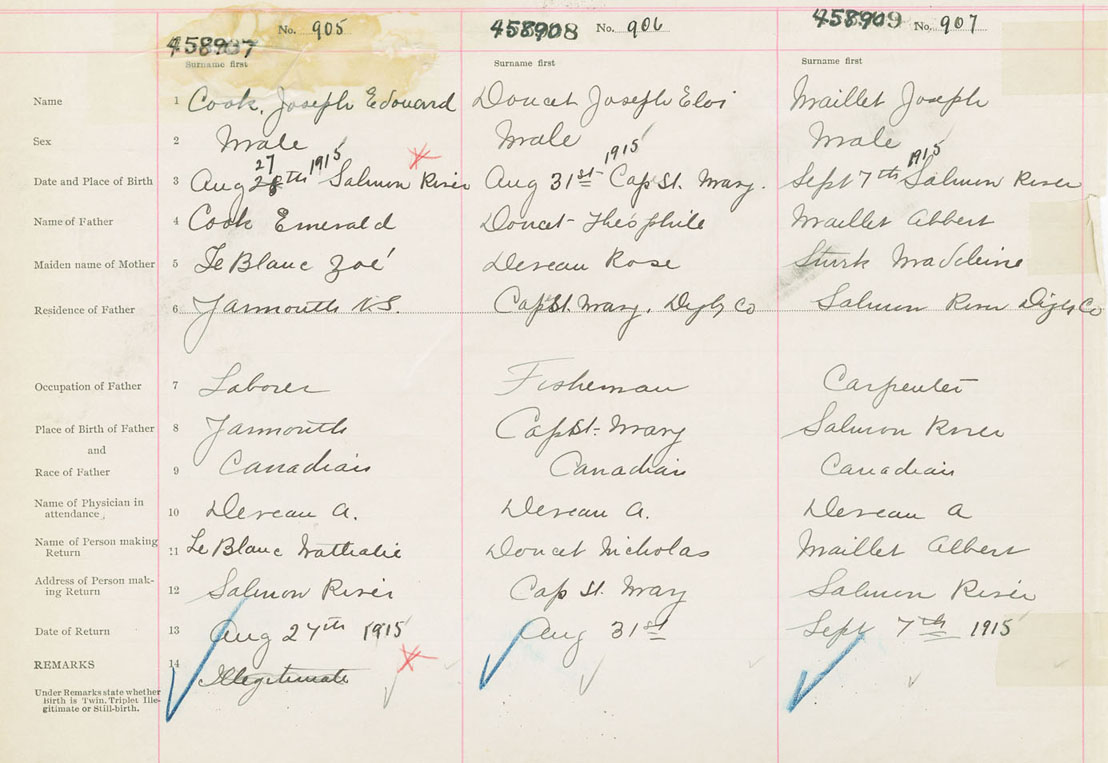 No. 905 458908 No. 906 458909 No. 907
458907
Surname first Surname first Surname first
Name 1 Cook, Joseph Edouard Doucet Joseph Eloi Maillet Joseph
Sex 2 Male Male Male
27 1915 1915 1915
Date and Place of Birth 3 Aug 28th Salmon River Aug 31st Cap St. Mary. Sept 7th Salmon River
Name of Father 4 Cook Emerald Doucet Théophile Maillet Albert
Maiden name of Mother 5 Le Blanc Zoé Deveau Rose Sturk Madeleine
Residence of Father 6 Yarmouth N.S. Cap St. Mary. Digby Co Salmon River Digby Co
Occupation of Father 7 Laborer Fisheman Carpenter
Place of Birth of Father 8 Yarmouth Cap St. Mary Salmon River
and
Race of Father 9 Canadian Canadian Canadian
Name of Physician in
attendance, 10 Deveau A. Deveau A. Deveau A
Name of Person making
Return 11 Le Blanc Nathalie Doucet Nicholas Maillet Albert
Address of Person mak-
ing Return 12 Salmon River Cap St. Mary Salmon River
Date of Return 13 Aug 27th 1915 Aug 31st Sept 7th 1915
REMARKS 14 Illegitimate
Under Remarks state whether
Birth is Twin, Triplet Ille-
gitimate or Still-birth.